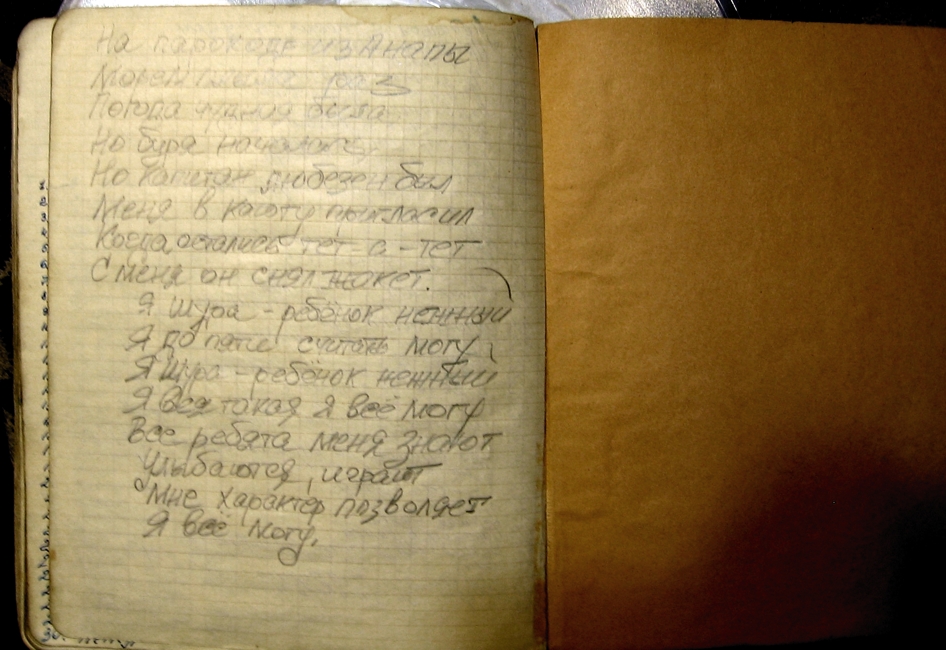 На пароходе из Анапы
Морем плыла раз
Погода чудная была
Но буря началась
Но капитан любезен был
Меня в каюту пригласил
Когда остались тет а-тет
С меня он снял жакет.
Я Шура - ребёнок нежный
Я до пяти считать могу
Я Шура - ребёнок нежный
Я вся такая Я всё могу
Все ребята меня знают
Улыбаются, играют
Мне характер позволяет
Я всё могу.